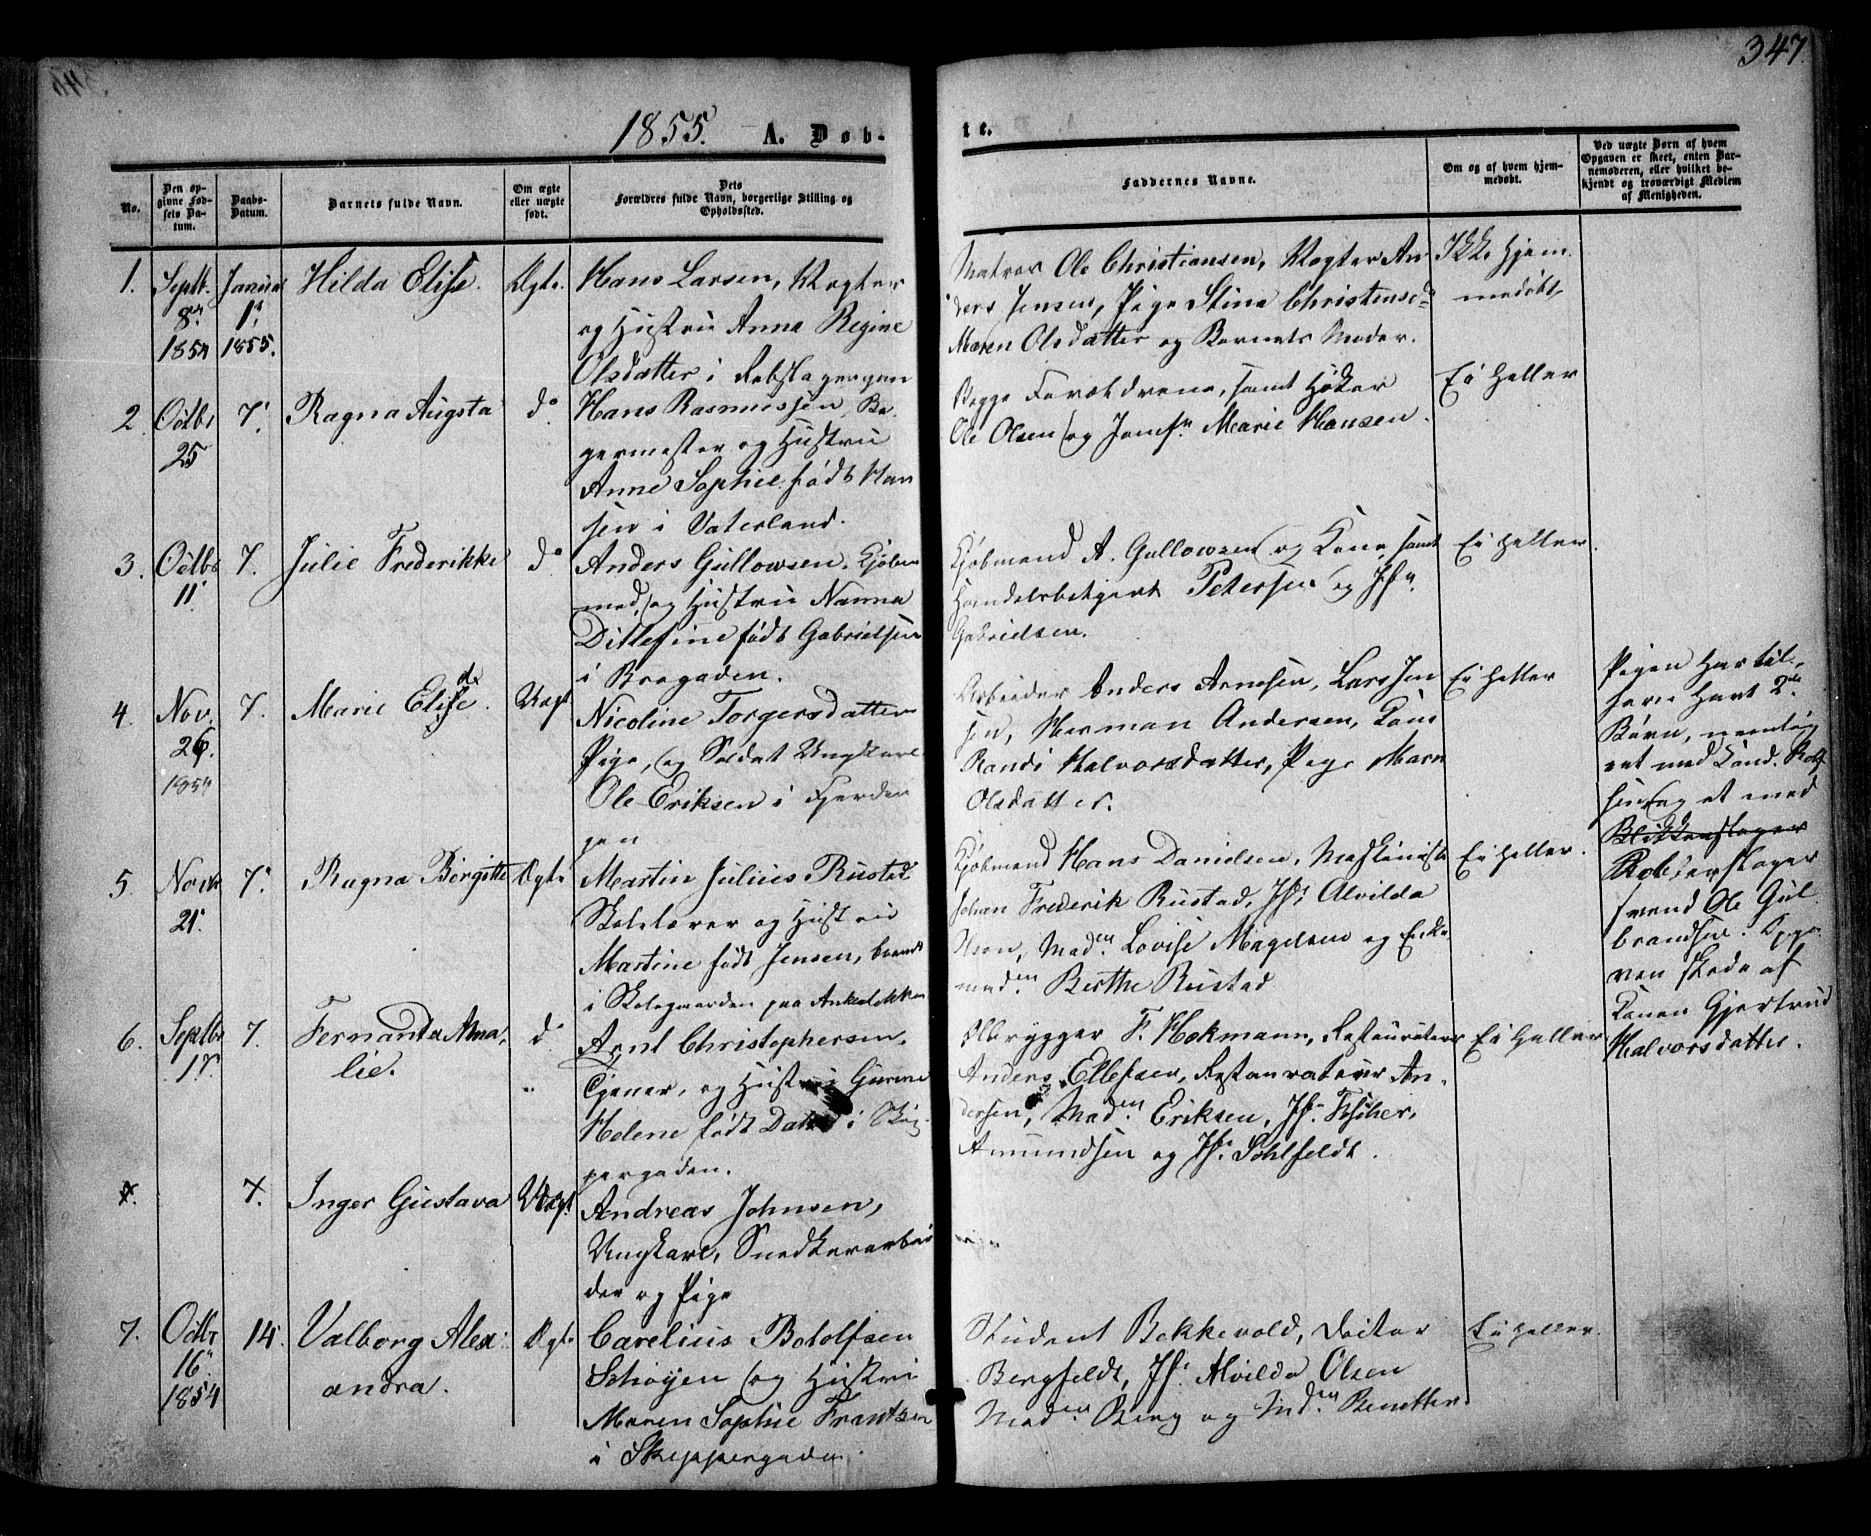 347.
1855. A. Døb-
te.
No.
Den op-
givne Fød-
sels Da-
tum.
Daabs-
Datum.
Barnets fulde Navn.
Om ægte
eller uægte
født.
Dets
Forældres fulde Navn, borgerlige Stilling og
Opholdssted.
Faddernes Navne.
Om og af hvem hjem-
medøbt.
Ved uægte Børn af hvem
Opgaven er skeet, enten Bar-
nemoderen, eller hvilket be-
kjendt og troværdigt Medlem
af Menigheden.
1.
Septb.
8de
1854
Januar
1.
1855.
Hilda Elise.
Ægte.
Hans Larsen, Vægter
og Hustru Anna Regine
Olsdatter i Rebslagergen
Matros Ole Christiansen, Vægter An
ders Jensen, Pige Stina Christensdr
Maren Olsdatter og Barnets Moder.
Ikke hjem-
medøbt
2.
Octbr
25
7.
Ragna Augsta
do
Hans Rasmussen, Ba-
germester og Hustru
Anne Sophie født Han
sen i Vaterland.
Begge Forældrene, samt Høker
Ole Olsen og Jomfn Marie Hansen.
Ei heller
3.
Octbr
11.
7.
Julie Frederikke
do
Anders Gullowsen, Kjøb-
mand og Hustru Nanna
Ditlefine født Gabrielsen
i Brogaden.
Kjøbmand A. Gullowsen og Kone, samt
Handelsbetjent Petersen og Jfn
Gabrielsen.
Ei heller.
4.
Nov.
26.
1854
7.
Marie Elise.
Uægt
Nicoline Torgersdatter
Pige, og Soldat Ungkarl
Ole Eriksen i Fjerdin
gen
Arbeider Anders Arnesen, Lars Jen
sen, Herman Andersen, Kone
Randi Halvorsdatter, Pige Maren
Olsdatter.
Ei heller
Pigen har til-
forn havt 2de
Børn, nemlig
eet med Cand.
sen og et med
Blikkenslager
Kobberslager
svend Ole Gul
brandsen. Opga-
ven skede af
Konen Gjertrud
Halvorsdatter.
5.
Novbr
21.
7.
Ragna Birgitte
Ægte
Martin Julius Rustad
Skolelærer og Hustru
Martine født Jensen, boende
i Skolegaarden paa Ankerløkken
Kjøbmand Hans Danielsen, Maskinist
Johan Frederik Rustad, Jfr Alvilda
Olson, Maden Lovise Magelsen og Enke
maden Berthe Rustad
Ei heller.
6.
Septbr
17.
7.
Fernanda Ama-
lie.
do
Arnt Christophersen,
Tjener, og Hustru Gurine
Helene født Dahl i Skip-
pergaden.
Ølbrygger F. Hokmann, Restaurateur
Anders Ellefsen, Restaurateur An-
dersen, Maden Eriksen, Jfr Fischer,
Amundsen og Jfr. Sohlfeldt.
Ei heller
7.
7.
Inger Gustava
Uægt.
Andreas Johnsen,
Ungkarl, Snedkerarbei
der og Pige
7.
Octbr
16
1854
14.
Valborg Alex-
andra.
Ægte
Carelius Botolfsen
Schøyen og Hustru
Maren Sophie Frantzen
i Skippergaden.
Student Bekkevold, Doctor
Bergfeldt, Jfr Alvilda Olsen
Maden Berg og Mden Benetter.
Ei heller.